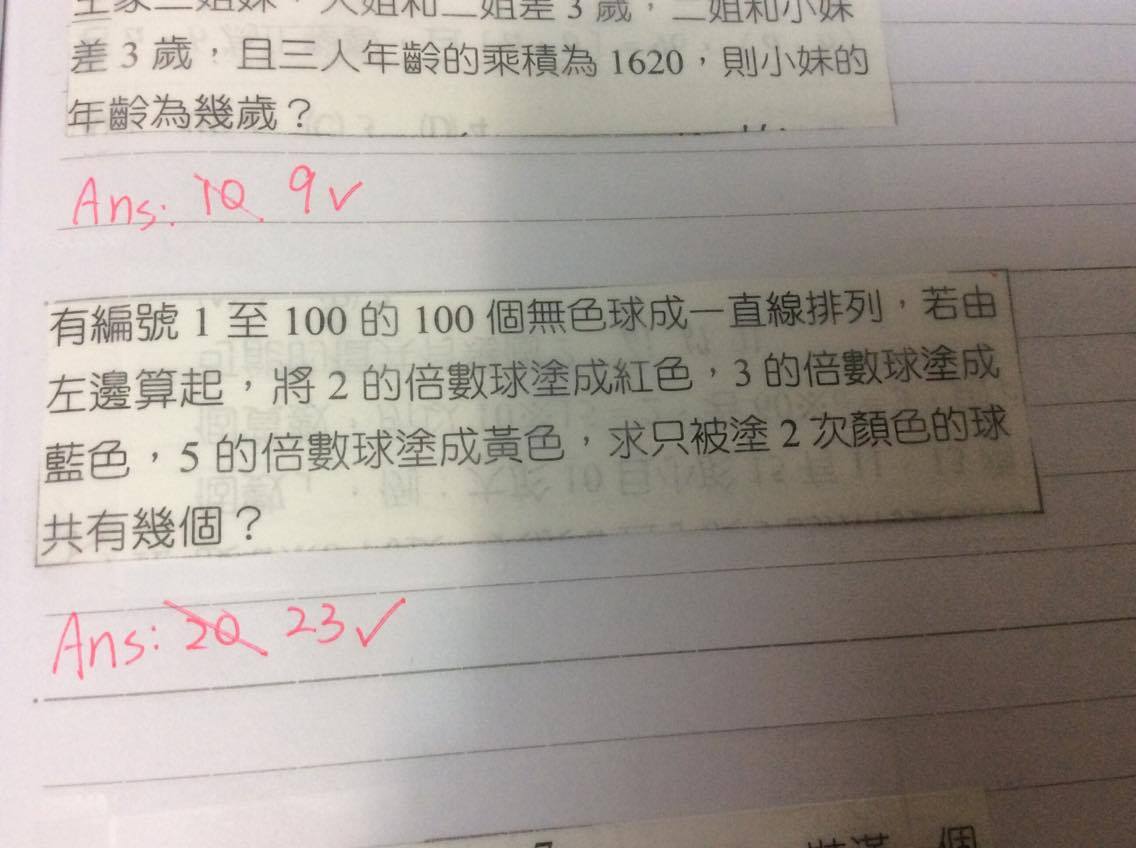 王家三姐妹，大姐和二姐差 3 歲，二姐和小妹
差 3 歲，且三人年齡的乘積為 1620，則小妹的
年齡為幾歲？
Ans: 10 9✓
有編號 1 至 100 的 100 個無色球成一直線排列，若由
左邊算起，將 2 的倍數球塗成紅色，3 的倍數球塗成
藍色，5 的倍數球塗成黃色，求只被塗 2 次顏色的球
共有幾個？
Ans: 20 23✓